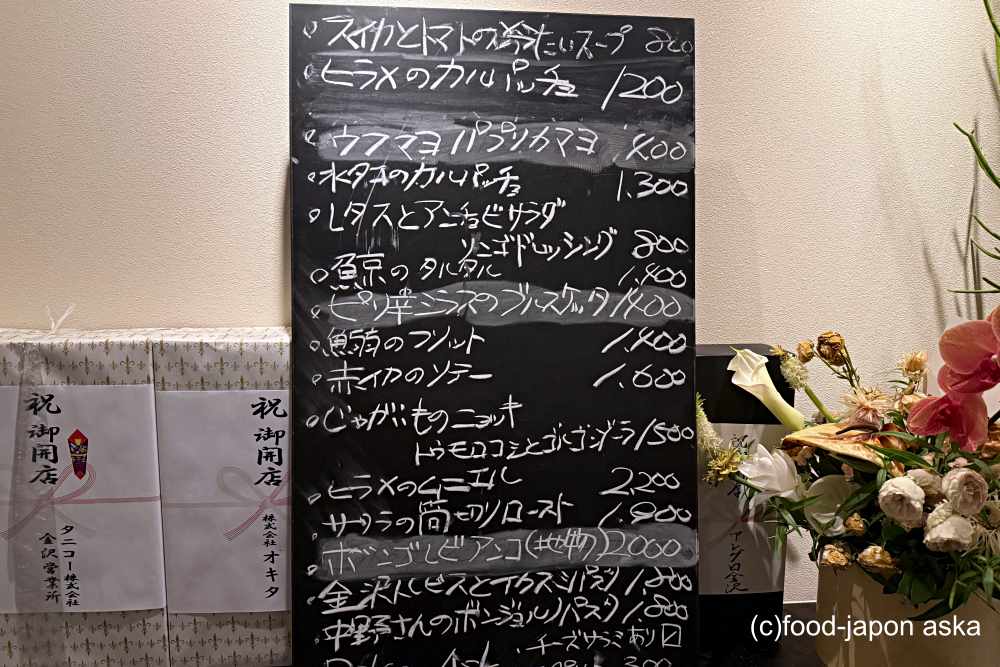 スイカとトマトの冷たいスープ 800
ヒラメのカルパッチョ 1200
ウフマヨ パプリカマヨ 400
水タコのカルパッチョ 1.300
レタスとアンチョビサラダ
リンゴドレッシング 800
鯨のタルタル 1.400
ピリ辛シラスのブルスケッタ 1400
鰯のフリット 1.400
赤イカのソテー 1.600
じゃがいものニョッキ
トウモロコシとゴルゴンゾーラ 1500
ヒラメのムニエル 2.200
サワラの筒切りロースト 1.900
ボンゴレビアンコ(地物) 2000
金沢 1.800
中野さんのボンジョルノパスタ 1.800
チーズサラミあり
300
祝
御開店
タニコー株式会社
金沢営業所
祝
御開店
株式会社オキタ
(c)food-japon aska